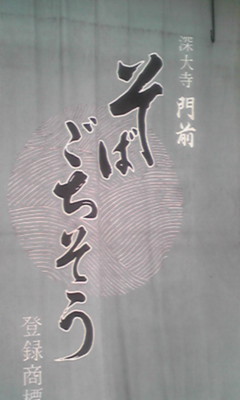 深大寺 門前
そば
ごちそう
登録商標